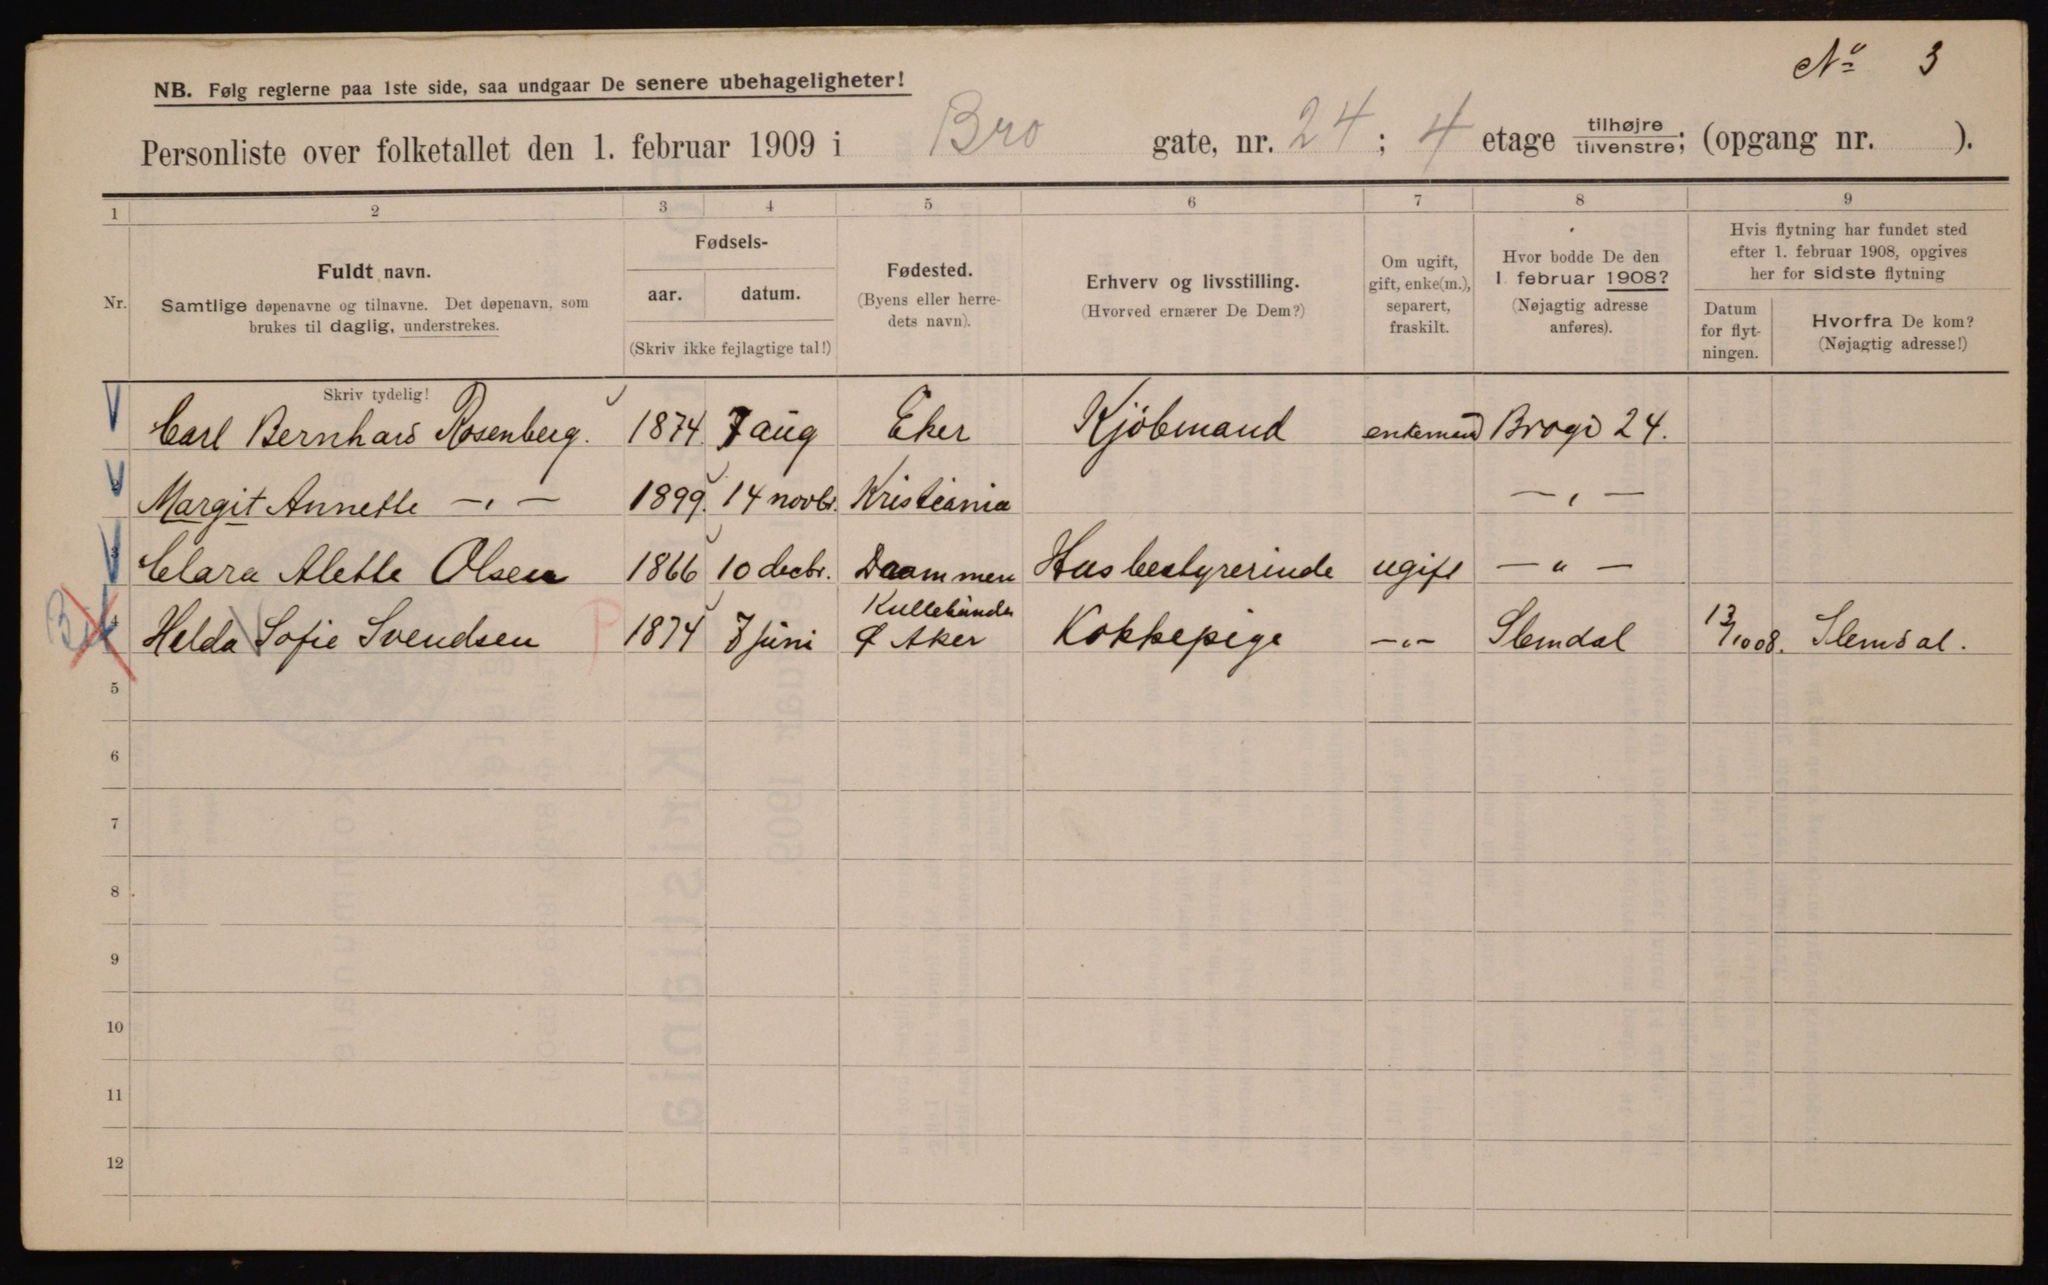 Nº 3
NB. Følg reglerne paa 1ste side, saa undgaar De senere ubehageligheter!
Personliste over folketallet den 1. februar 1909 i Bro gate, nr. 24 ; 4 etage tilhøjre/tilvenstre; (opgang nr. ).
1 2 3 4 5 6 7 8 9
Nr.
Fuldt navn.
Samtlige døpenavne og tilnavne. Det døpenavn, som
brukes til daglig, understrekes.
Fødsels-
aar. datum.
(Skriv ikke fejlagtige tal!)
Fødested.
(Byens eller herre-
dets navn).
Erhverv og livsstilling.
(Hvorved ernærer De Dem?)
Om ugift,
gift, enke(m.),
separert,
fraskilt.
Hvor bodde De den
1. februar 1908?
(Nøjagtig adresse
anføres).
Hvis flytning har fundet sted
efter 1. februar 1908, opgives
her for sidste flytning
Datum
for flyt-
ningen.
Hvorfra De kom?
(Nøjagtig adresse!)
Skriv tydelig!
Carl Bernhard Rosenberg. 1874 7 aug Eker Kjöbmand enkemand Brogd 24.
2 Margit Annette -"- 1899. 14 novbr. Kristiania -"-
3 Clara Alette Olsen 1866 10 decbr. Drammen Husbestyrerinde ugift -"-
4 Helda Sofie Svendsen 1874 7 juni Ø Aker Kokkepige -"- Slemdal 13/10 08. Slemdal.
5
6
7
8
9
10
11
12